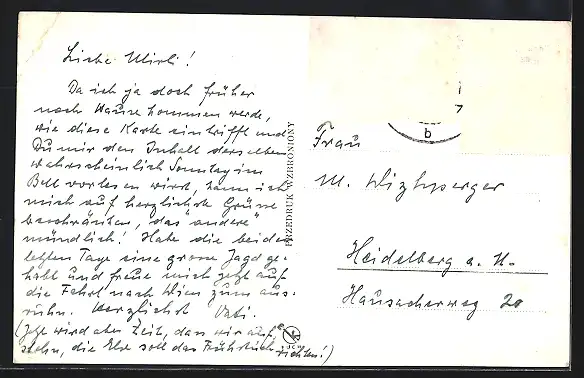 Liebe Mirli!
Da ich ja doch früher
nach Hause kommen werde,
wie diese Karte eintrifft und
Du mir den Inhalt derselben
wahrscheinlich Sonntag im
Bett vorlesen wirst, kann ich
mich auf herzlichste Grüsse
beschränken, das "andere"
mündlich! Habe die beiden
letzten Tage eine grosse Jagd ge-
habt und freue mich jetzt auf
die Fahrt nach Wien zum aus-
ruhn. Herzlichst Vati.
(Jetzt wird aber Zeit, dass wir auf-
stehn, die Else soll das Frühstück richten!)
PRZEDRUK WZBRONIONY
b
Frau
M.
Heidelberg a. N.
Hausackerweg 20